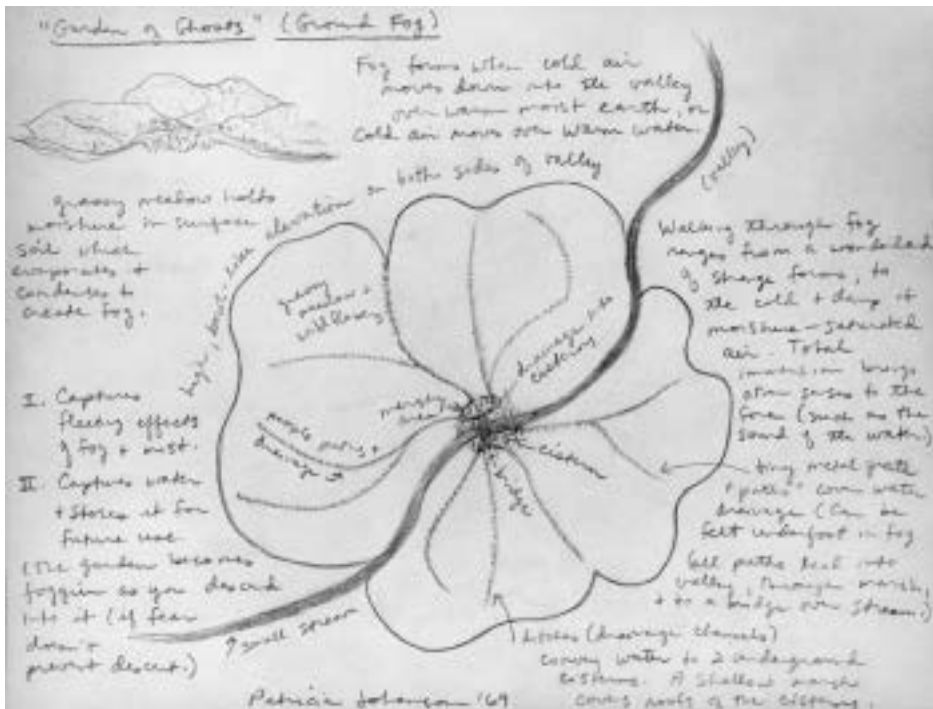 "Garden of Ghosts" (Ground Fog)
Fog forms when cold air
moves down into the valley
over warm moist earth, or
cold air moves over warm water.
(valley)
high, trail-side elevation on both sides of valley
grassy meadow holds
moisture in surface
soil which
evaporates +
condenses to
create fog.
Walking through fog
ranges from a wonderland
of strange forms, to
the cold + damp of
moisture-saturated
air. Total
immersion brings
other senses to the
fore (such as the
sound of the water.)
grassy
meadow +
wildflowers
drainage into
cisterns
marshy
people paths +
drainage
cistern
bridge
I. Captures
fleeting effects
of fog + mist.
II. Captures water
+ stores it for
future use.
(The garden becomes
foggier as you descend
into it (if fear
doesn't
prevent descent.)
tiny metal path
"paths" cover water
drainage (Can be
felt underfoot in fog
(all paths lead into
valley, through marsh,
+ to a bridge over stream.)
small stream
ditches (drainage channels)
convey water to 2 underground
cisterns. A shallow marsh
covers roofs of the cisterns.
Patricia Johanson '69